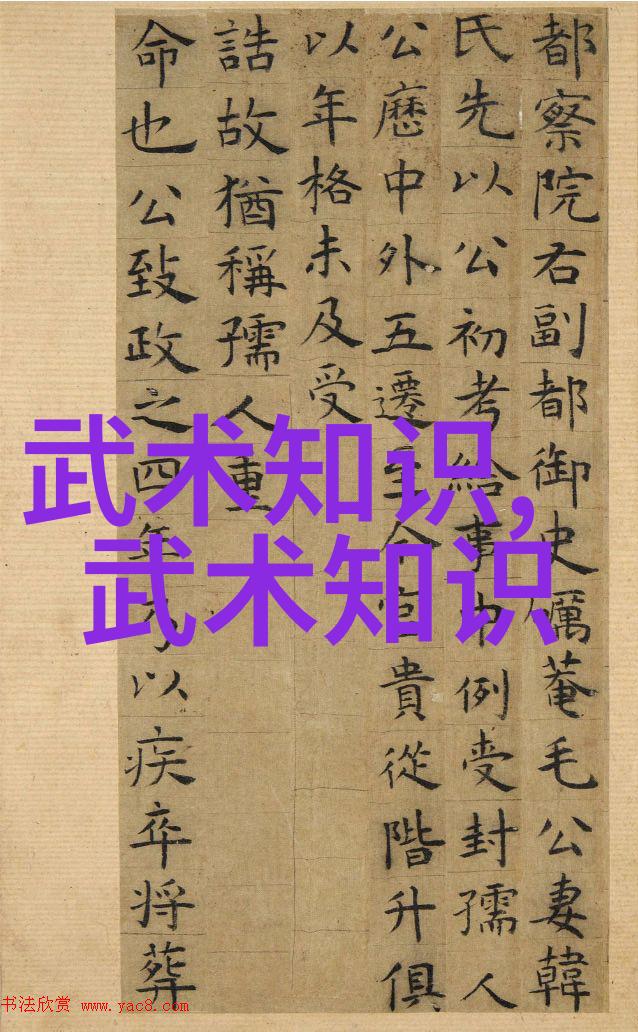 都察院右副都御史礪菴毛公妻韓
氏先以公初考給事中例受封孺人
公歷中外五遷至今官貴從階升俱
以年格未及受
誥故猶稱孺人重
命也公致政之四年乃以疾卒將葬
武术知识,
武术知识
书法欣赏 www.yac8.com